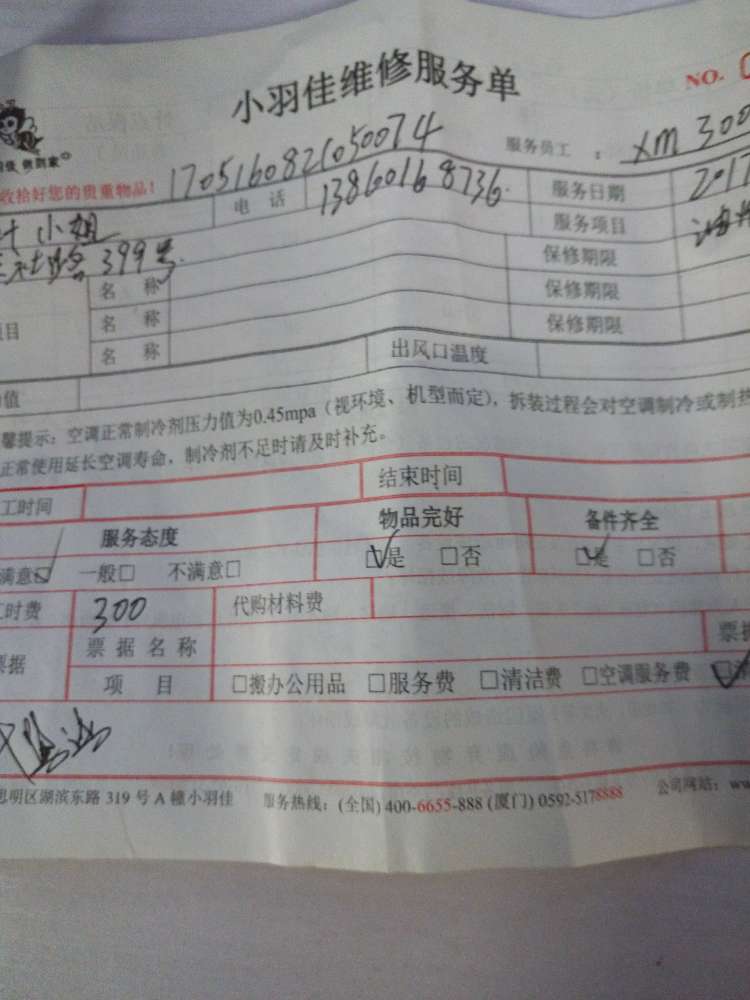 小羽佳维修服务单
NO. 0
做到家
收拾好您的贵重物品! 1705160821050074 服务员工 : XM 300
小姐 电 话 13860168736. 服务日期 2017
399号 服务项目
名 称 保修期限
项目 名 称 保修期限
名 称 保修期限
值 出风口温度
馨提示:空调正常制冷剂压力值为0.45mpa(视环境、机型而定),拆装过程会对空调制冷或制热
正常使用延长空调寿命,制冷剂不足时请及时补充。
工时间 结束时间
服务态度 物品完好 备件齐全
满意☑ 一般□ 不满意□ ☑是 □否 ☑是 □否
工时费 300 代购材料费
票据 票 据 名 称 票据
项 目 □搬办公用品 □服务费 □清洁费 □空调服务费 ☑
思明区湖滨东路 319 号 A 幢小羽佳 服务热线:(全国) 400-6655-888 (厦门) 0592-5178888 公司网站:ww